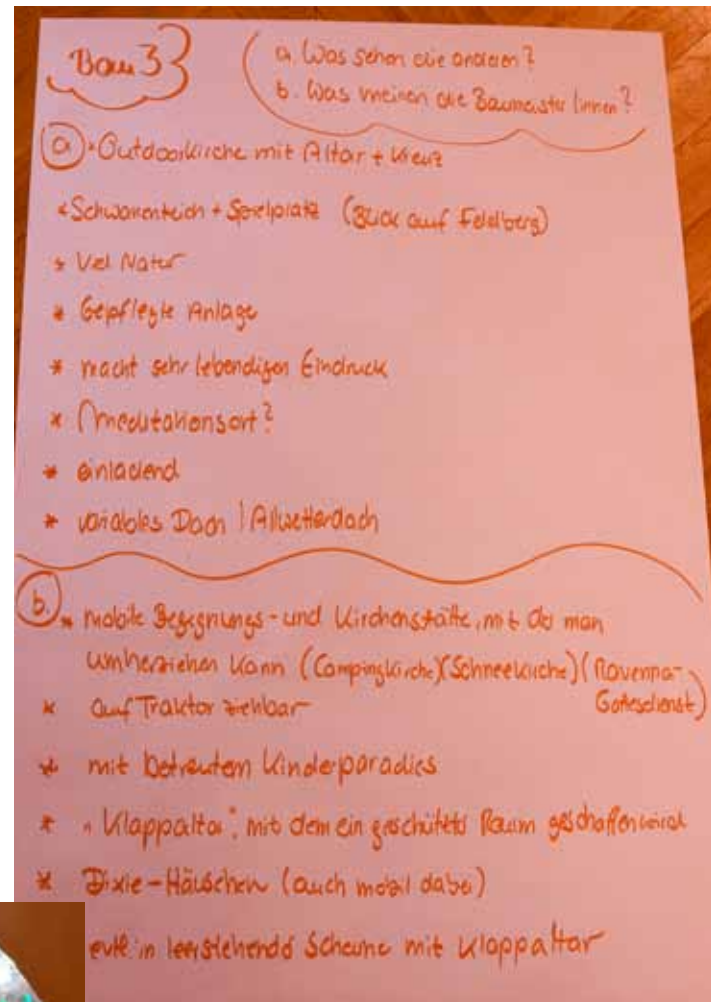 Bau 3
a. Was sehen die anderen?
b. Was meinen die Baumeister/innen?
a * Outdoorkirche mit Altar + Kreuz
* Schwanenteich + Spielplatz (Blick auf Feldberg)
* Viel Natur
* Gepflegte Anlage
* macht sehr lebendigen Eindruck
* Meditationsort?
* einladend
* variables Dach / Allwetterdach
b. * mobile Begegnungs- und Kirchenstätte, mit der man
umherziehen kann (Campingkirche) (Schneekirche) (Ravenna-
Gottesdienst)
* auf Traktor ziehbar
* mit betreutem Kinderparadies
* "Klappaltar", mit dem ein geschützter Raum geschaffen wird
* Dixie-Häuschen (auch mobil dabei)
evtl. in leerstehender Scheune mit Klappaltar